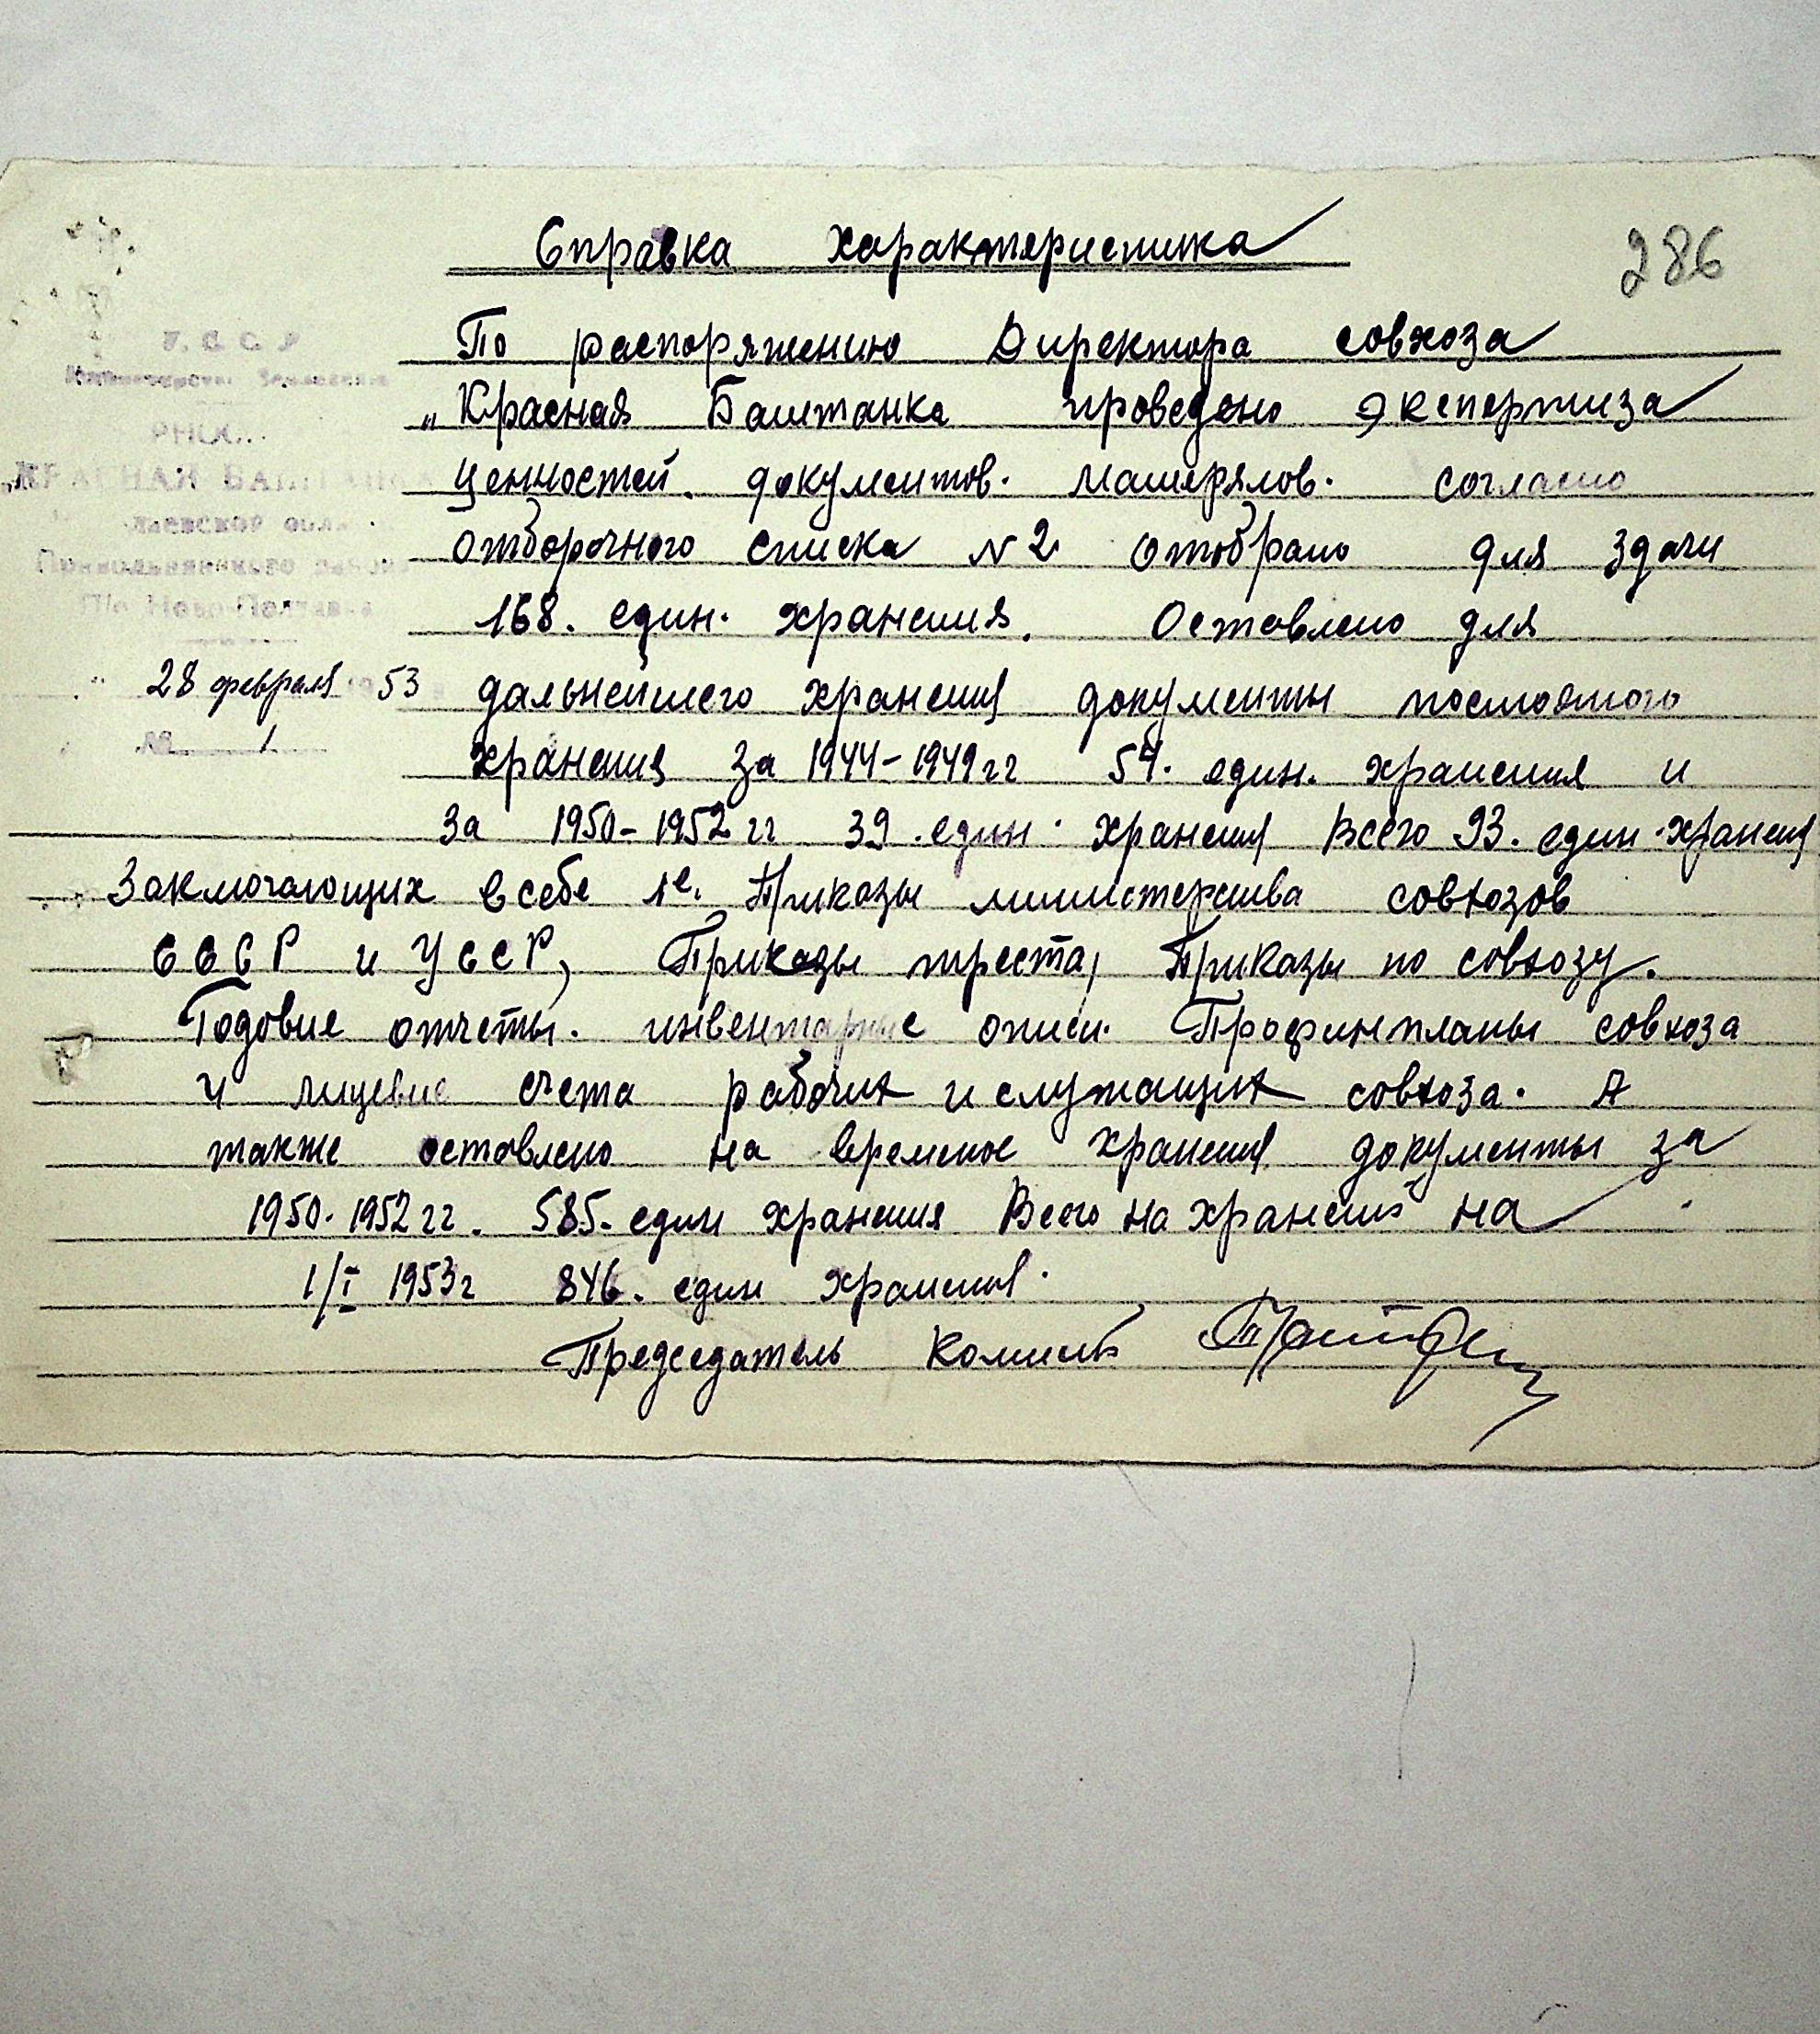 Справка характеристика
286
У. С С Р
Министерство
КРАСНАЯ БАШТАНКА
Привольнянского
П/о Ново-Полтавка
28 февраля 53
№ 1
По распоряжению Директора совхоза
„Красная Баштанка проведено экспертиза
ценностей. документов. матерялов. согласно
отборочного списка N 2 отобрано для здачи
168. един. хранения. Оставлено для
дальнейшего хранения документы постояного
хранения за 1944-1949 гг 54. един. хранения и
за 1950-1952 гг 39. един. хранения Всего 93. един. хранения
Заключающих в себе 1е. Приказы министерства совхозов
СССР и УССР, Приказы треста, Приказы по совхозу.
Годовие отчеты. инвентарные описи. Профинпланы совхоза
и лицевие счета рабочих и служащих совхоза. А
также оставлено на временое хранения документы за
1950. 1952 гг. 585. един хранения Всего на хранении на
1/I 1953 г 846. един хранения.
Председатель